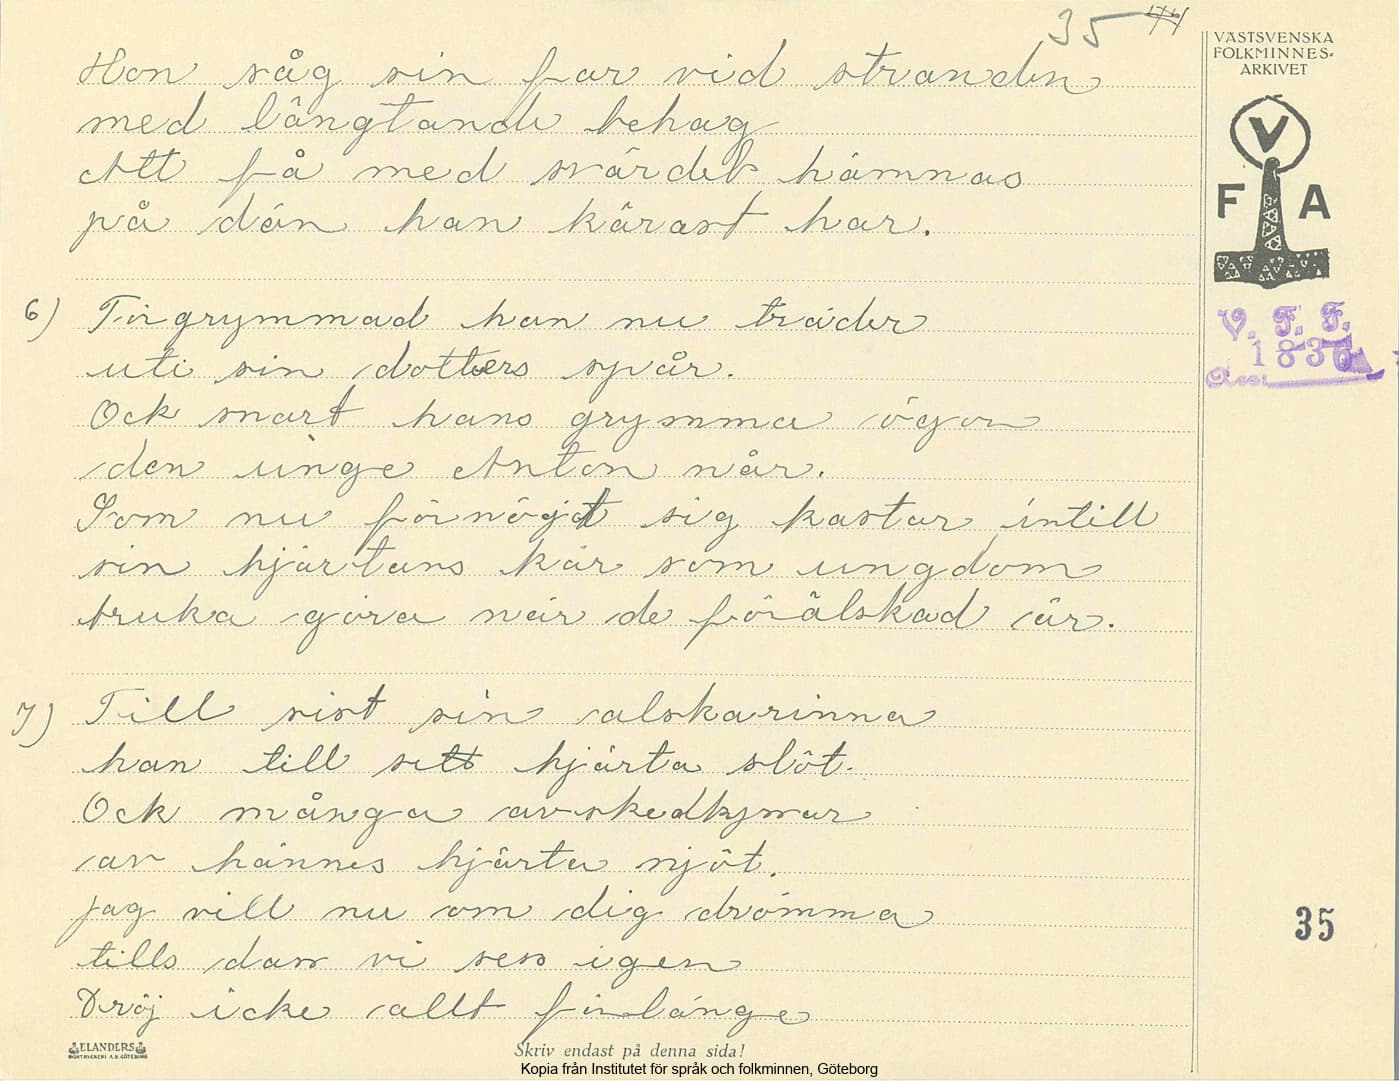 35 44
VÄSTSVENSKA
FOLKMINNES-
ARKIVET
V
F A
V. F. F.
1836
Acc.
Hon såg sin far vid stranden
med långtande behag
Att få med svärdet hämnas
på dän han kärast har.
6) Förgrymmad han nu träder
uti sin dotters spår.
Ock snart hans grymma ögon
den unge Anton når.
Som nu förnöjdt sig kastar intill
sin hjärtans kär som ungdom
bruka göra när de förälskad är.
7) Till sist sin alskarinna
han till sitt hjärta slöt.
Ock många avskedkyssar
av hännes hjärta njöt.
Jag vill nu om dig drömma
tills dass vi sess igen
Dröj icke allt förlänge
35
ELANDERS
BOKTRYCKERI A.B. GÖTEBORG
Skriv endast på denna sida!
Kopia från Institutet för språk och folkminnen, Göteborg